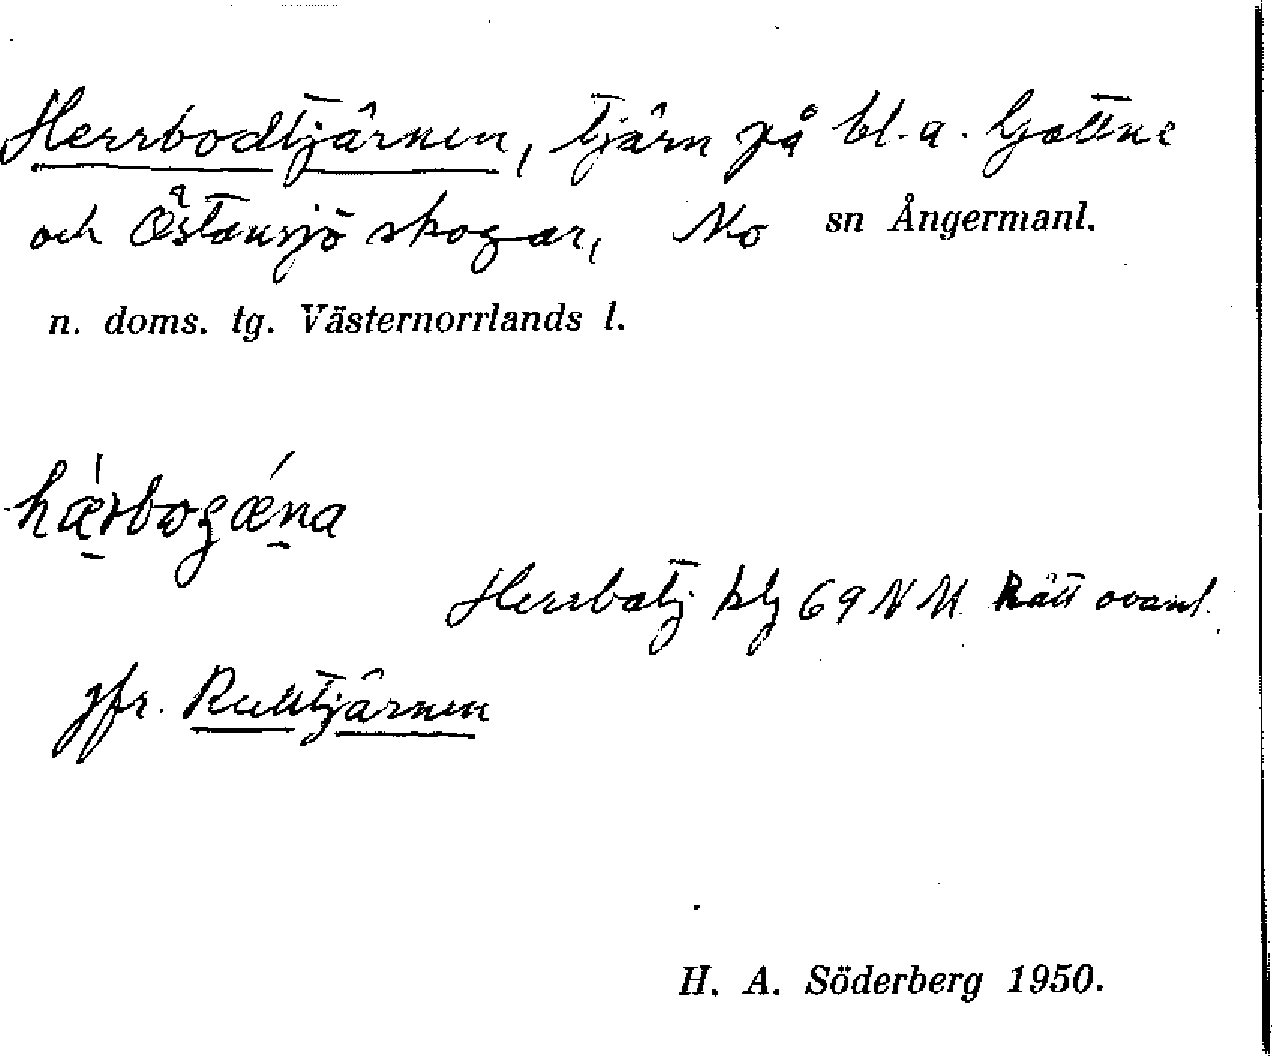 Herrbodtjärnen, tjärn på bl. a. Gottne
och Östansjö skogar, Mo sn Ångermanl.
n. doms. tg. Västernorrlands l.
Herrbotj blz 69 NM Rätt ovanl.
jfr. Rutttjärnen
H. A. Söderberg 1950.